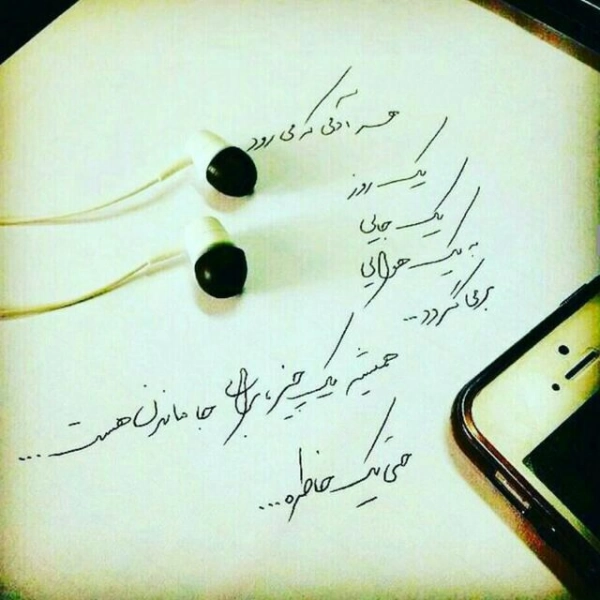 هر آدمی که می رود
یک روز
یک جایی
به یک هوایی
برمی گردد...
همیشه یک چیز، برای جا ماندن هست...
حتی یک خاطره...